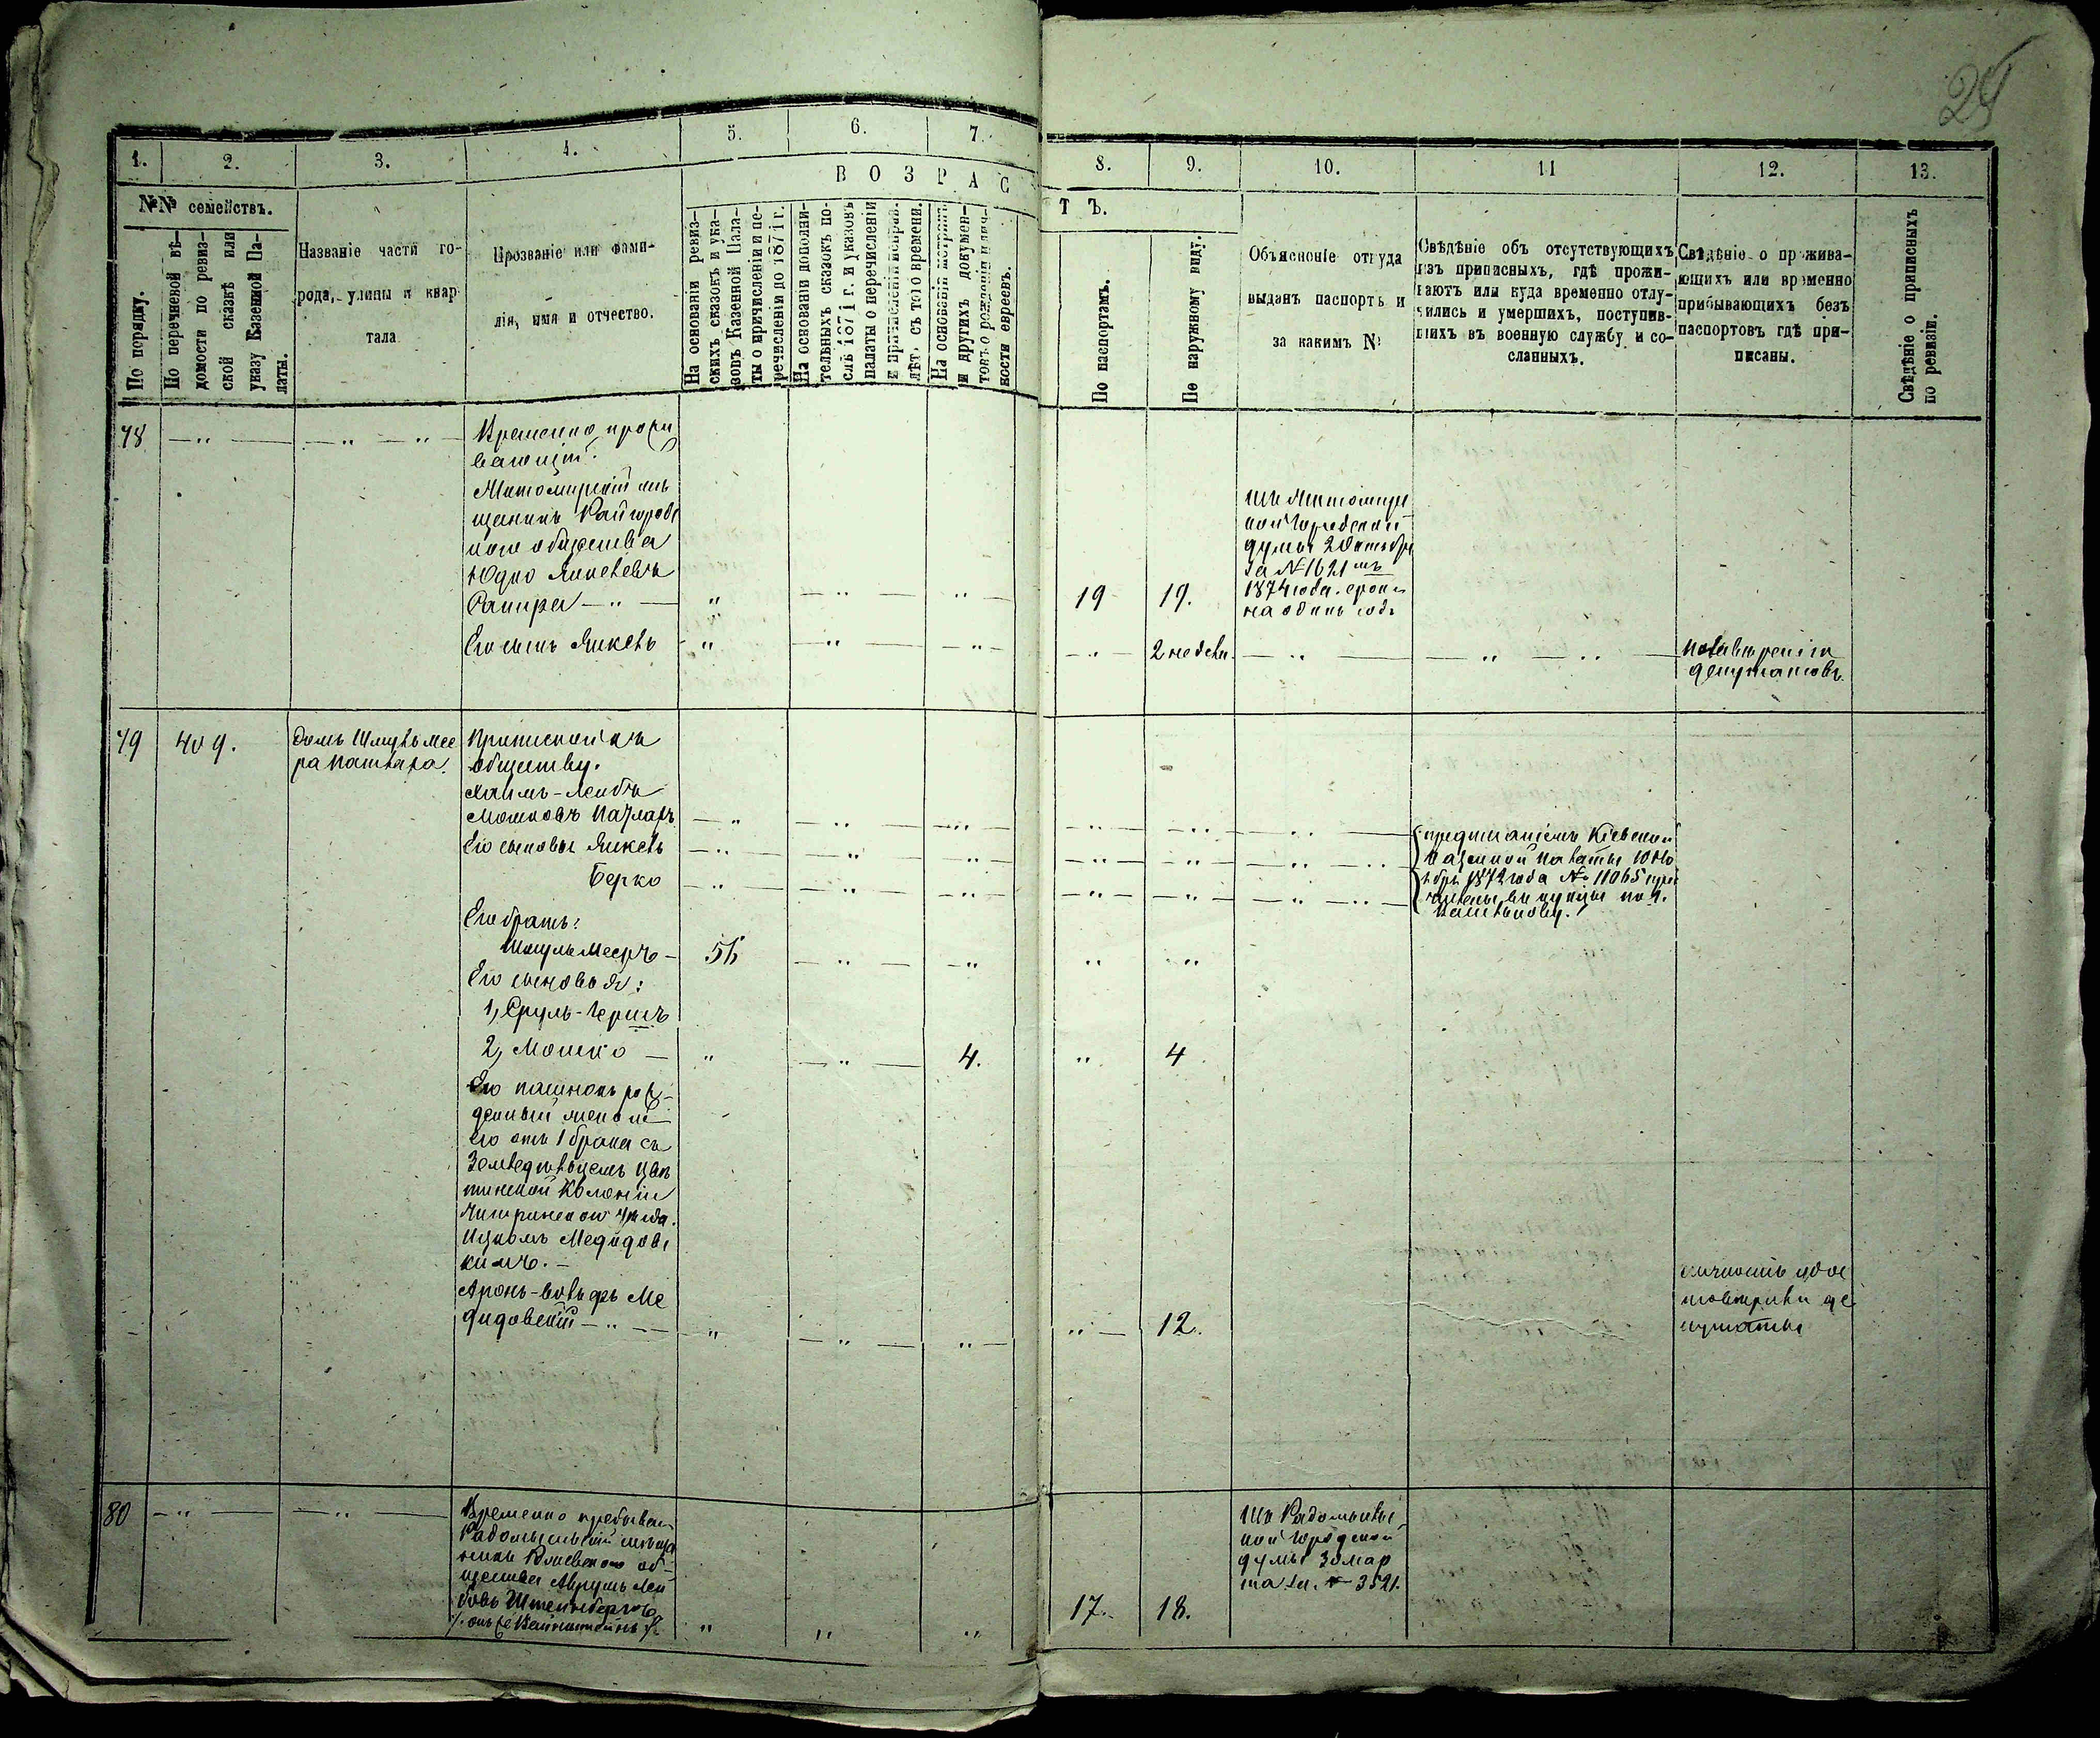 25
1. 2. 3. 4. 5. 6. 7. 8. 9. 10. 11 12. 13.
№№ семействъ.
В О З Р А С Т Ъ.
По порядку.
По перечневой вѣ-
домости по ревиз-
ской сказкѣ или
указу Казенной Па-
латы.
Названіе части го-
рода, улицы и квар
тала
Прозваніе или фами-
лія, имя и отчество.
На основаніи ревиз-
скихъ сказокъ и ука-
зовъ Казенной Пала-
ты о причисленіи и пе-
речисленіи до 1871 г.
На основаніи дополни-
тельныхъ сказокъ по-
слѣ 1871 г. и указовъ
палаты о перечисленіи
и причисленіи
лѣтъ съ того времени.
На основаніи метрикъ
и другихъ докумен-
товъ о рожденіи и лич-
ности евреевъ.
По паспортамъ.
По наружному виду.
Объясненіе откуда
выданъ паспортъ и
за какимъ №
Свѣдѣніе объ отсутствующихъ
изъ приписныхъ, гдѣ прожи-
ваютъ или куда временно отлу-
чились и умершихъ, поступив-
шихъ въ военную службу и со-
сланныхъ.
Свѣдѣніе о прожива-
ющихъ или временно
прибывающихъ безъ
паспортовъ гдѣ при-
писаны.
Свѣдѣніе о приписныхъ
по ревизіи.
78 — „ — — „ — „ — Временно прожи
вающій.
Житомирскій мѣ
щанинъ Райгород
кого общества
Юдко Янкелевъ
Сапира — „ — „ — „ — „ — 19 19.
Изъ Житомирс
кой Городской
думы 2 Октября
за № 1621 мъ
1874 года. срокъ
на одинъ годъ
Его сынъ Янкель — „ — „ — „ — „ — 2 недели. — „ — — „ — „ —
по завѣренію
депутатовъ.
79 409. Домъ Шмуль Мее
ра Качлара.
Приписной къ
обществу.
Хаимъ-Лейба
Мошковъ Качларъ — „ — „ — „ — „ — „ — „ —
Его сыновья Янкель — „ — „ — „ — „ — „ — „ — „
Берко — „ — „ — „ — „ — „ — „ — „ —
предписаніемъ Кіевской
Казенной Палаты 10 Но
ября 1872 года № 11065 при
числены въ купцы по г.
Его братъ:
Шмуль Мееръ — 56 — „ — „ „ „
Его сыновья:
1, Сруль-Гершъ
2, Мошко — „ — „ — 4. „ 4
Его пасынокъ рож-
денный женой
его отъ 1 брака съ
Земледѣльцемъ
тинской Колоніи
Чигринского Уѣзда.
Ицкомъ Медидовс
кимъ. —
Аронъ-Вольфъ Ме
дидовскій — „ — „ — „ — „ — „ — 12.
личность удос
товѣрили де
путаты
80 — „ — — „ — Временно пребываю
Радомысльскій мѣща
нинъ об-
щества Аврумъ Лей
бовъ Штейнбергъ
/. онъ же Вайнштейнъ ./. „ „ „ 17. 18.
Изъ Радомысльс
кой Городской
думы 30 Мар
та за № 3521.